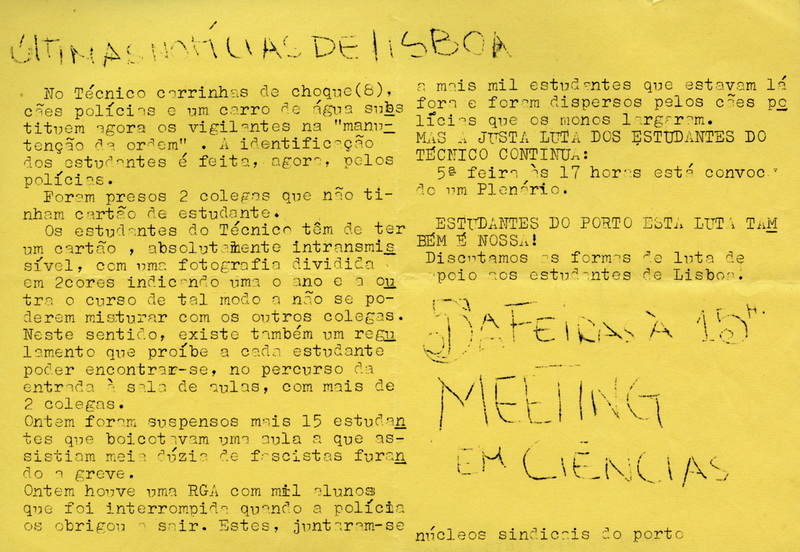 ÚLTIMAS NOTÍCIAS DE LISBOA
No Técnico carrinhas de choque(8),
cães polícias e um carro de água subs
tituem agora os vigilantes na "manu-
tenção da ordem" . A identificação
dos estudantes é feita, agora, pelos
polícias.
Foram presos 2 colegas que não ti-
nham cartão de estudante.
Os estudantes do Técnico têm de ter
um cartão , absolutamente intransmis
sível, com uma fotografia dividida
em 2cores indicando uma o ano e a ou
tra o curso de tal modo a não se po-
derem misturar com os outros colegas.
Neste sentido, existe também um regu
lamento que proíbe a cada estudante
poder encontrar-se, no percurso da
entrada à sala de aulas, com mais de
2 colegas.
Ontem foram suspensos mais 15 estudan
tes que boicotavam uma aula a que as-
sistiam meia dúzia de fascistas furan
do a greve.
Ontem houve uma RGA com mil alunos
que foi interrompida quando a polícia
os obrigou a sair. Estes, juntaram-se
a mais mil estudantes que estavam lá
fora e foram dispersos pelos cães po
lícias que os monos largaram.
MAS A JUSTA LUTA DOS ESTUDANTES DO
TÉCNICO CONTINUA:
5ª feira às 17 horas está convoc
do um Plenário.
ESTUDANTES DO PORTO ESTA LUTA TAM
BÉM É NOSSA!
Discutamos as formas de luta de
apoio aos estudantes de Lisboa.
5ª FEIRAS À 15H.
MEETING
EM CIÊNCIAS
núcleos sindicais do porto